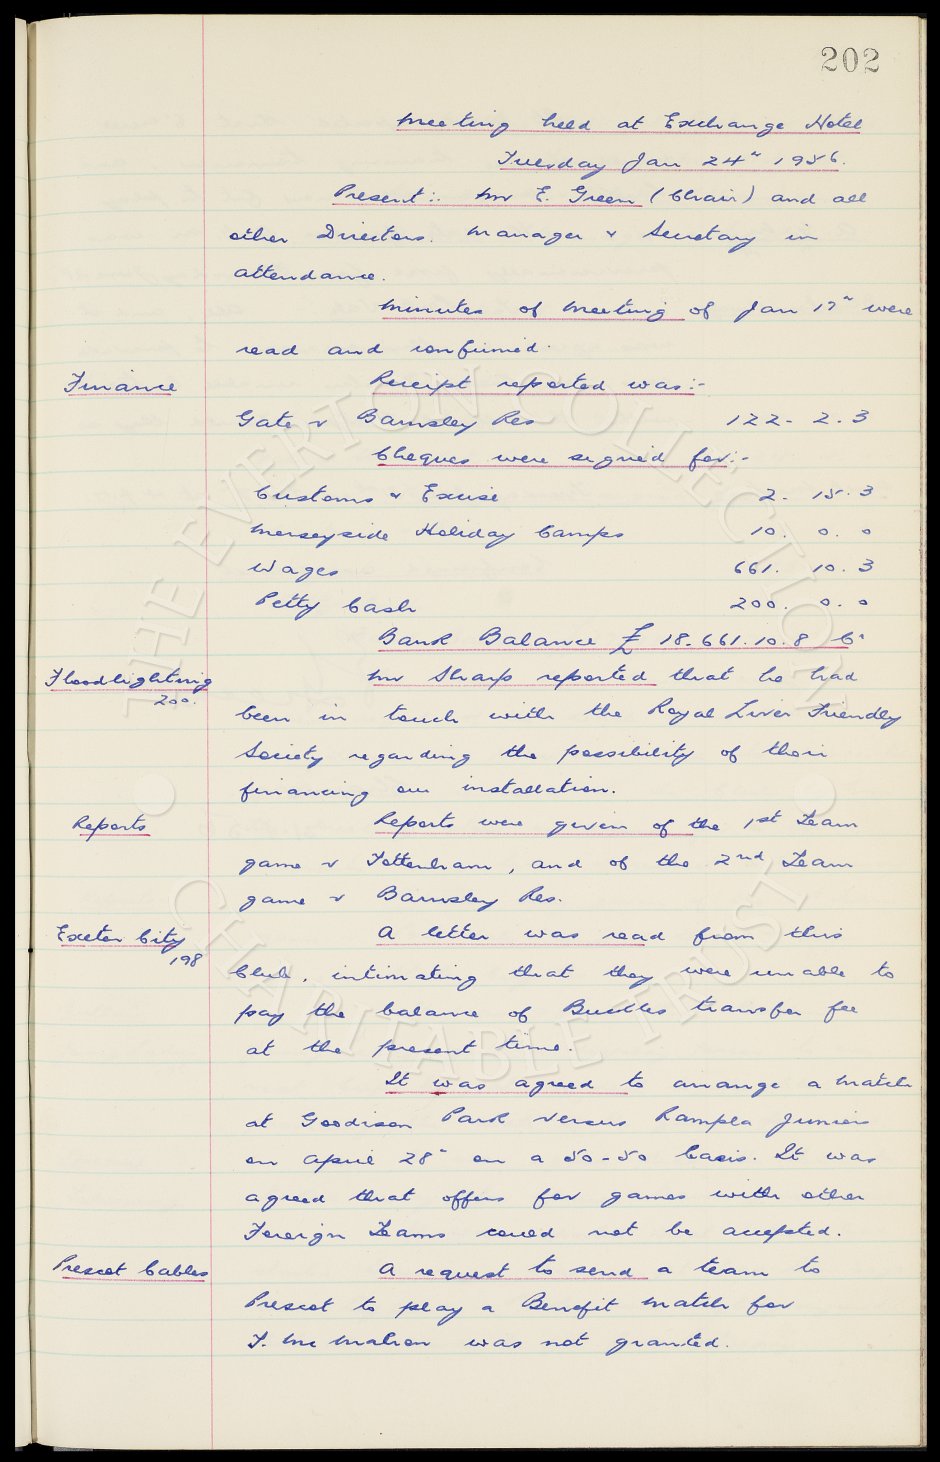 202
Meeting held at Exchange Hotel
Tuesday Jan 24th 1956.
Present:. Mr E. Green (Chair) and all
other Directors. Manager & Secretary in
attendance.
Minutes of Meeting of Jan 17th were
read and confirmed.
Finance Receipt reported was:-
Gate v Barnsley Res 122. 2. 3
Cheques were signed for:-
Customs & Excise 2. 15. 3
Merseyside Holiday Camps 10. 0. 0
Wages 661. 10. 3
Petty Cash 200. 0. 0
Bank Balance £18.661.10.8 Cr
Floodlighting Mr Sharp reported that he had
200.
been in touch with the Royal Liver Friendly
Society regarding the possibility of their
financing our installation.
Reports Reports were given of the 1st Team
game v Tottenham, and of the 2nd Team
game v Barnsley Res.
Exeter City A letter was read from this
198
Club, intimating that they were unable to
pay the balance of Buckles transfer fee
at the present time.
It was agreed to arrange a match
at Goodison Park versus Rampla Juniors
on April 28th on a 50-50 basis. It was
agreed that offers for games with other
Foreign Teams could not be accepted.
Prescot Cables A request to send a team to
Prescot to play a Benefit Match for
T. McMahon was not granted.
THE EVERTON COLLECTION
CHARITABLE TRUST